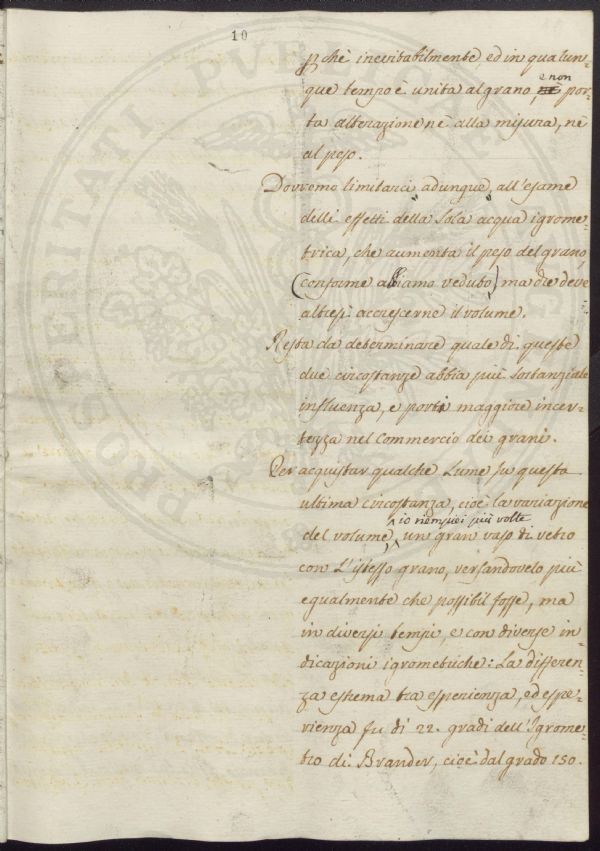 10
p chè inevitabilmente ed in qualun-
que tempo è unita al grano, e non por-
ta alterazione nè alla misura, nè
al peso.
Dovremo limitarci adunque, all'esame
delli effetti della sola acqua igrome-
trica, che aumenta il peso del grano,
(conforme abbiamo veduto) ma che deve
altresì accrescerne il volume.
Resta da determinare quale di queste
due circostanze abbia più sostanziale
influenza, e porti maggiore incer-
tezza nel Commercio dei grani.
Per acquistar qualche Lume su questa
ultima circostanza, cioè la variazione
del volume, io riempiei più volte un gran vaso di vetro
con L'istesso grano, versandovelo più
egualmente che possibil fosse, ma
in diversi tempi, e con diverse in-
dicazioni igrometriche: La differen-
za estrema tra esperienza, ed espe-
rienza fu di 22. gradi dell'Igrome-
tro di Brander, cioè dal grado 150.
PROSPERITATI PUBLICAE